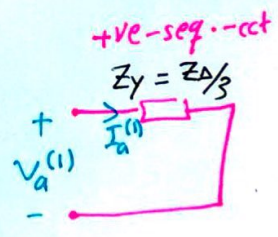 +ve-seq.-cct
Zy = ZΔ/3
+
Ia(1)
Va(1)
-